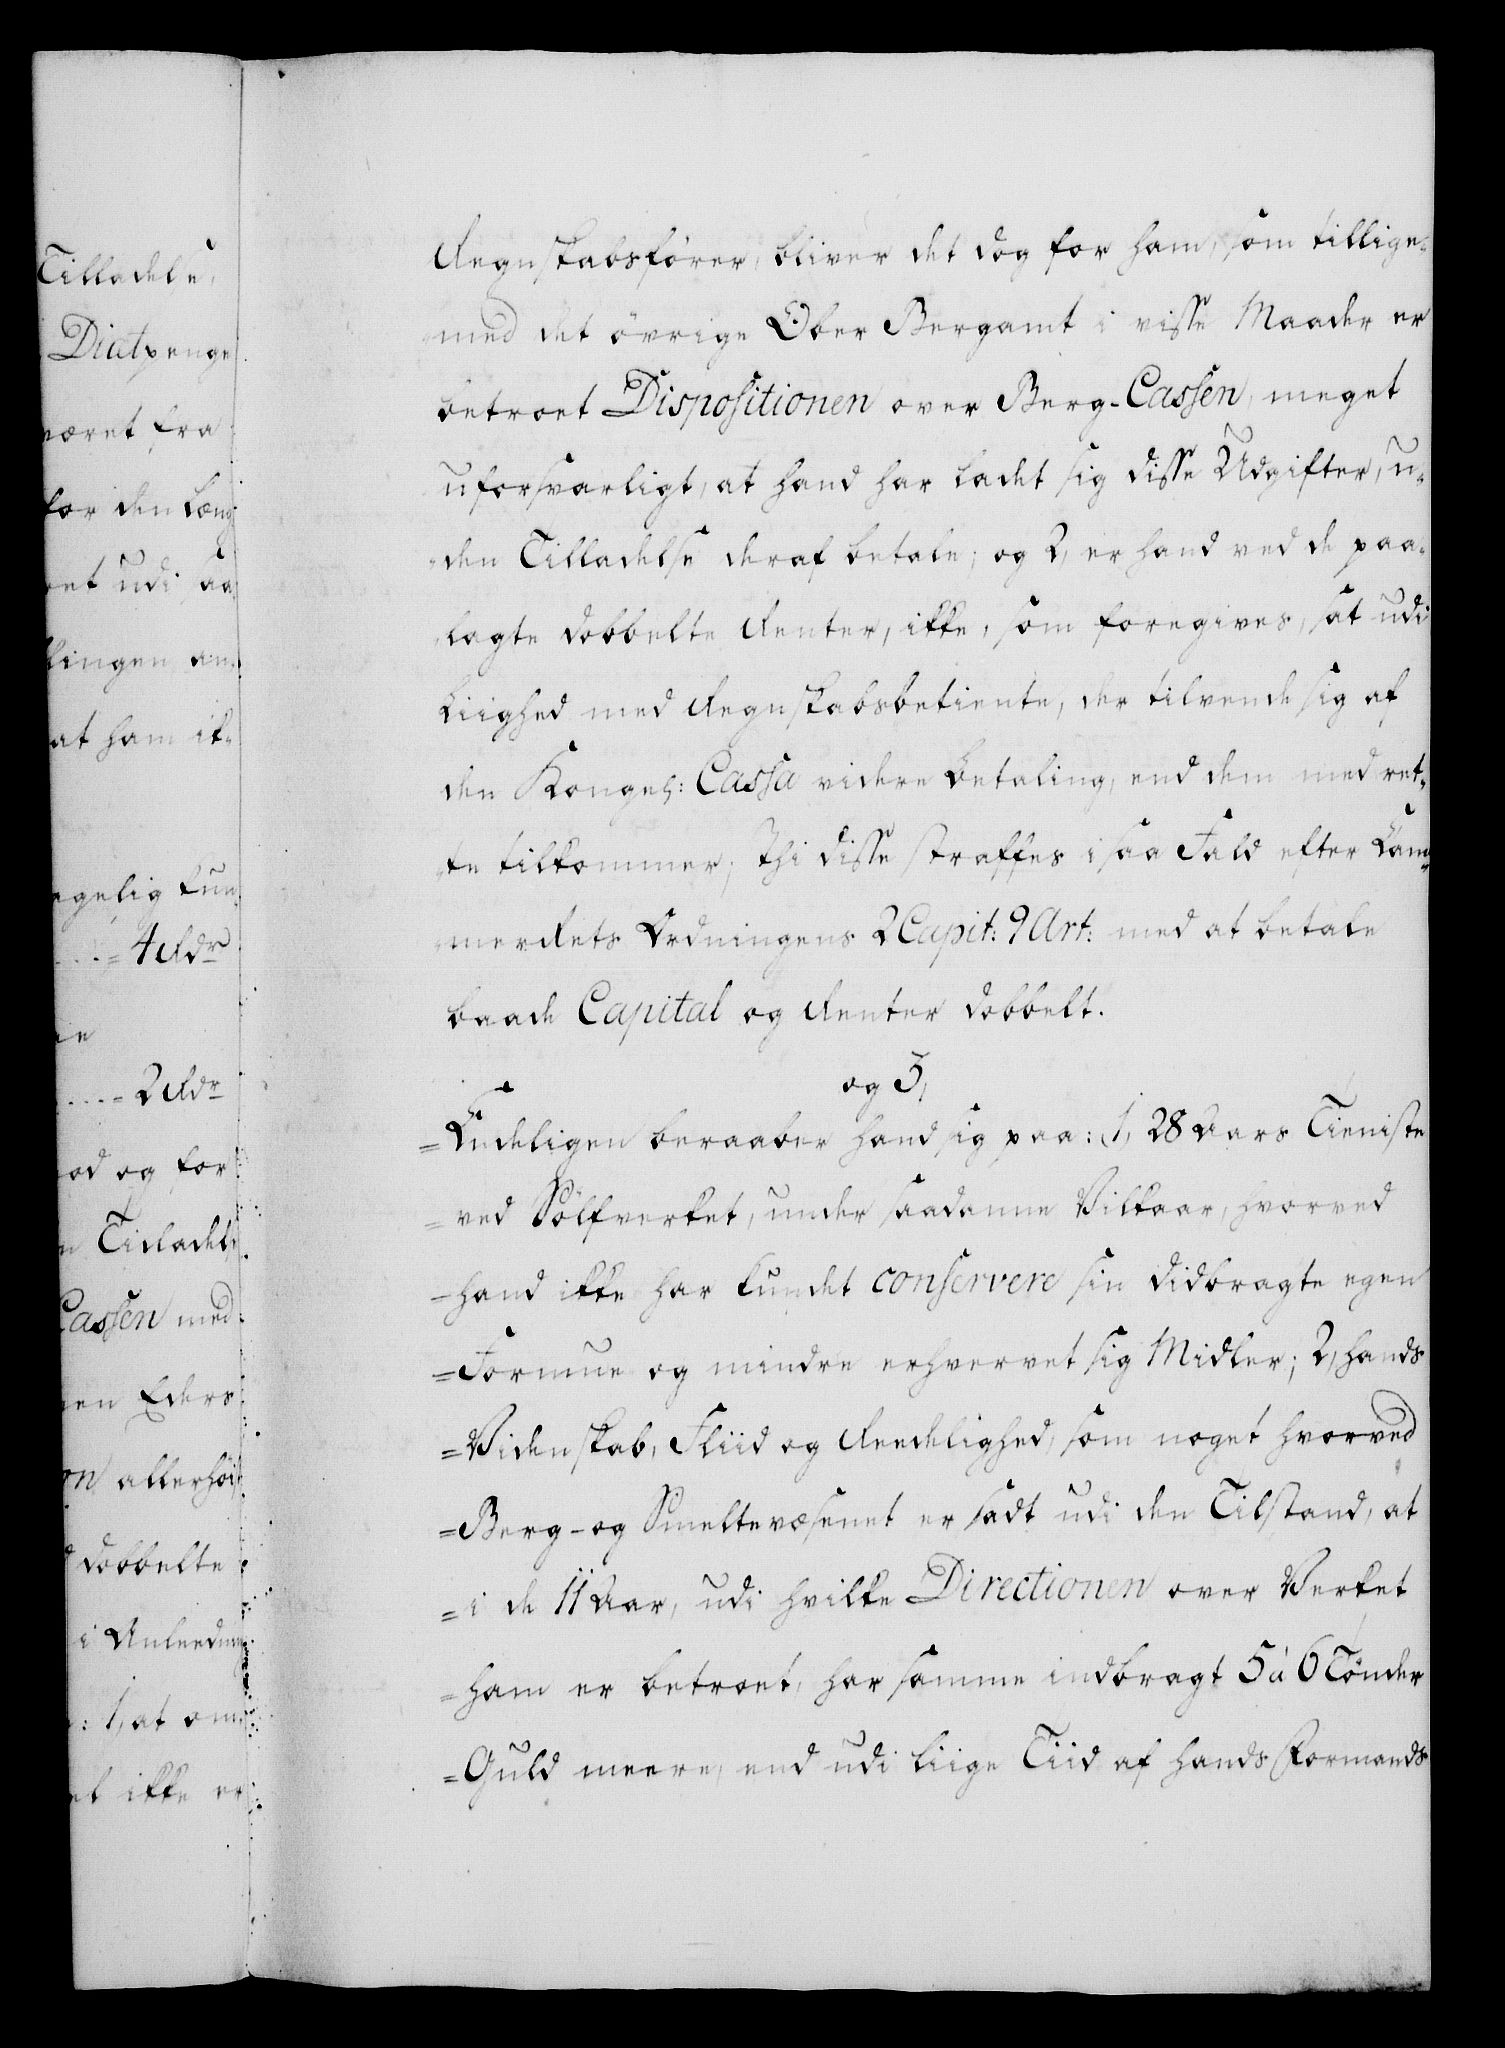 Tilladelse,
Diætpenge
været fra
for den Læng
ret udi aa
lingen an-
at ham ik-
agelig kun
4 Rdr
2 Rdr
od og for
Tilladels
Cassen med
en Eders
on allerhöist
dobbelte
i Anleedning
: 1, at om
el ikke er
Regnskabsförer, bliver det dog for ham, som tillige-
med det övrige Ober Bergamt i visse Maader er
betroet Dispositionen over Berg-Cassen, meget
uforsvarligt, at hand har ladet sig disse Udgifter, u-
den Tilladelse deraf betale; og 2, er hand ved de paa-
lagte dobbelte Renter, ikke, som foregives, sat udi
Liighed med Regnskabsbetiente, der tilvende sig af
den Kongel: Cassa videre Betaling, end dem med ret-
te tilkommer; thi disse straffes i saa Fald efter Cam-
merRets Ordningens 2 Capit: 9 Art: med at betale
baade Capital og Renter dobbelt.
og 3,
=Endeligen beraaber hand sig paa: 1, 28 Aars Tieniste
=ved Sölfverket, under saadanne Vilkaar, hvorved
=hand ikke har kundet conservere sin didbragte egen
=Formue og mindre erhvervet sig Midler; 2, hands
=Videnskab, Fliid og Reedelighed, som noget hvorved
=Berg- og Smeltevæsenet er sadt udi den Tilstand, at
=i de 11 Aar, udi hvilke Directionen over Verket
=ham er betroet, har samme indbragt 5 à 6 Tönder
=Guld meere, end udi liige Tiid af hands Formands